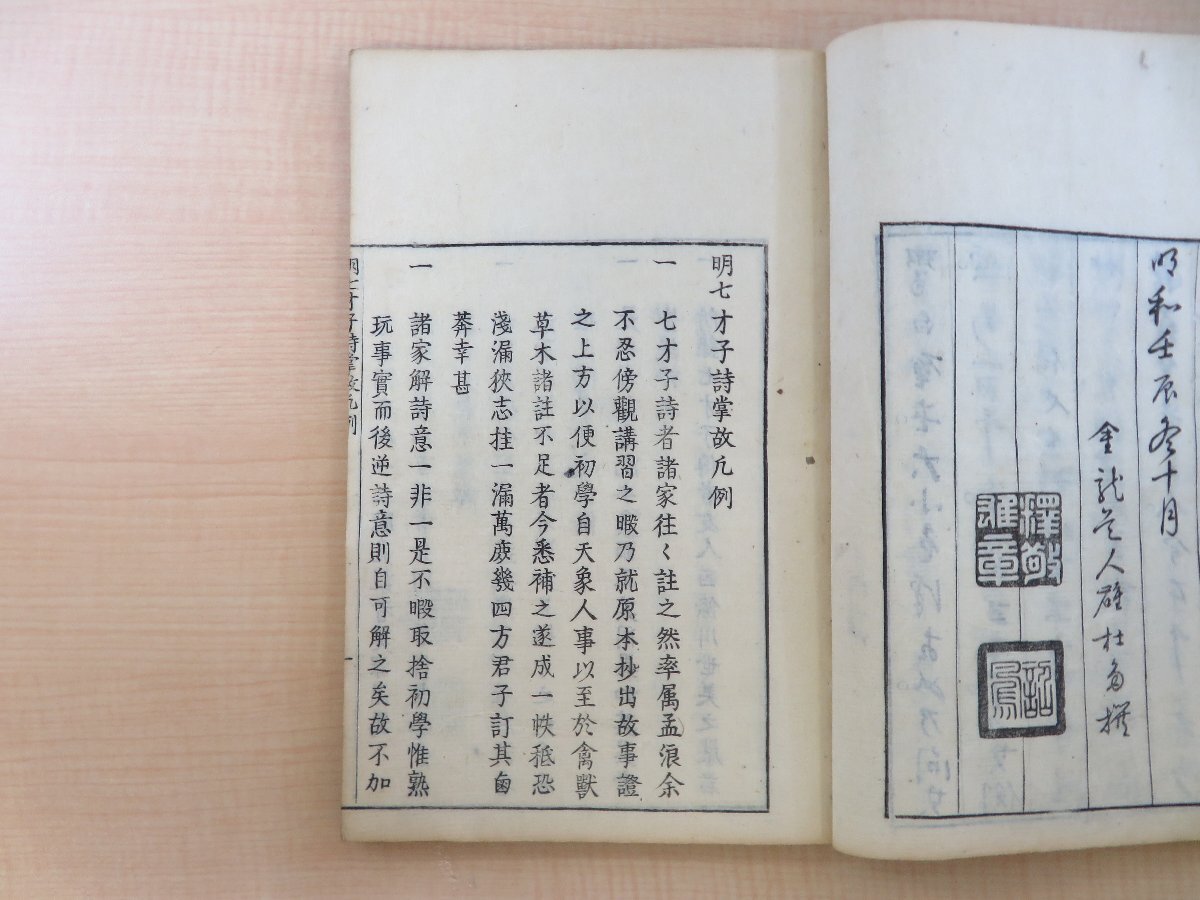 明和壬辰冬十月
金龍道人雄杜多撰
釋敬雄章
明七才子詩掌故凡例
一 七才子詩者諸家往〻註之然率属孟浪余
不忍傍觀講習之暇乃就原本抄出故事證
之上方以便初學自天象人事以至於禽獸
草木諸註不足者今悉補之遂成一帙秪恐
淺漏狹志挂一漏萬庻幾四方君子訂其鹵
莾幸甚
一 諸家解詩意一非一是不暇取捨初學惟熟
玩事實而後逆詩意則自可解之矣故不加
明七才子詩掌故凡例
一